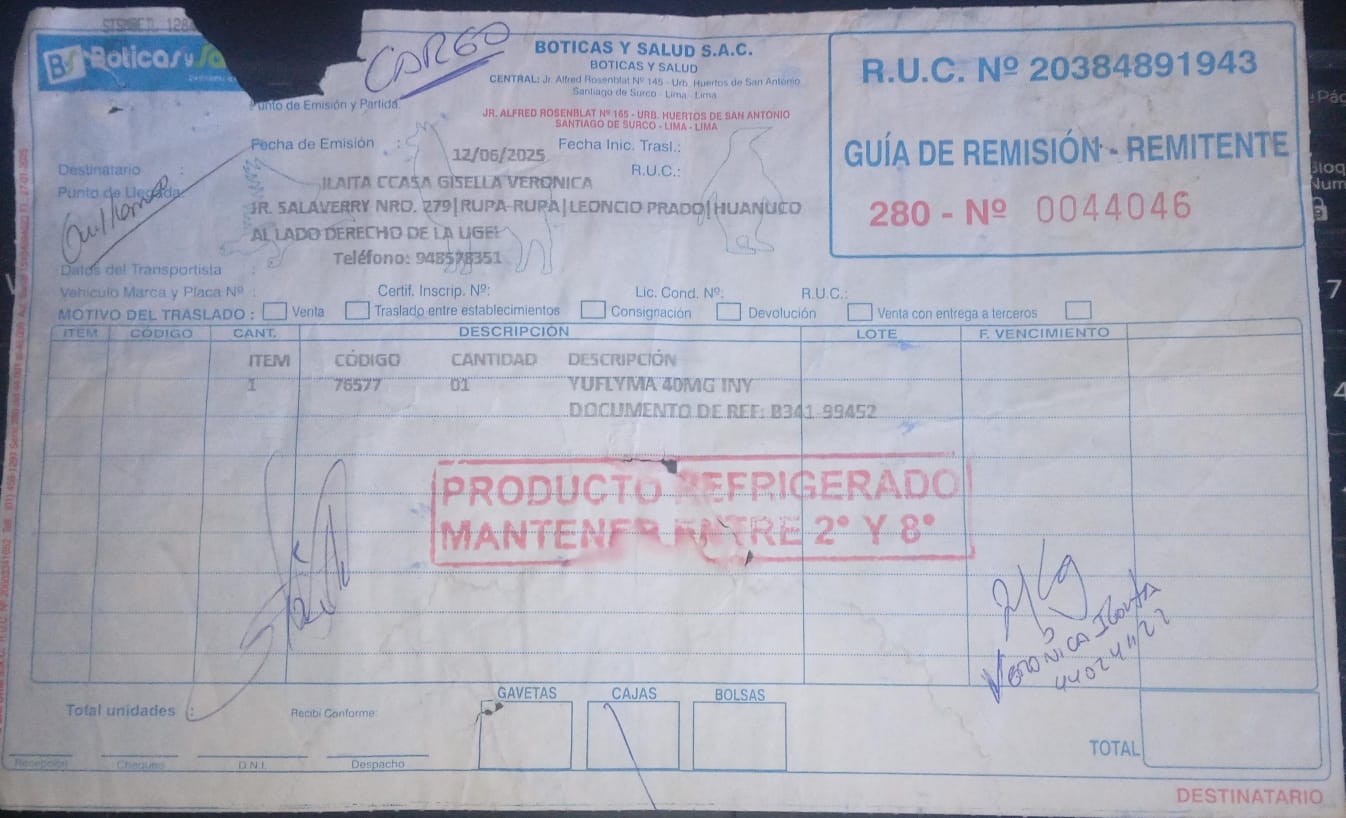 CARGO
BS Boticas y Sa
BOTICAS Y SALUD S.A.C.
BOTICAS Y SALUD
CENTRAL: Jr. Alfred Rosenblat Nº 145 - Urb. Huertos de San Antonio
Santiago de Surco - Lima - Lima
JR. ALFRED ROSENBLAT Nº 165 - URB. HUERTOS DE SAN ANTONIO
SANTIAGO DE SURCO - LIMA - LIMA
R.U.C. Nº 20384891943
GUÍA DE REMISIÓN - REMITENTE
280 - Nº 0044046
Punto de Emisión y Partida:
Fecha de Emisión : 12/06/2025 Fecha Inic. Trasl.:
Destinatario : ILAITA CCASA GISELLA VERONICA R.U.C.:
Punto de Llegada: JR. SALAVERRY NRO. 279|RUPA-RUPA|LEONCIO PRADO|HUANUCO
AL LADO DERECHO DE LA UGEL
Teléfono: 948578351
Datos del Transportista :
Vehículo Marca y Placa Nº : Certif. Inscrip. Nº: Lic. Cond. Nº: R.U.C.:
MOTIVO DEL TRASLADO : Venta Traslado entre establecimientos Consignación Devolución Venta con entrega a terceros
ITEM CÓDIGO CANT. DESCRIPCIÓN LOTE F. VENCIMIENTO
ITEM CÓDIGO CANTIDAD DESCRIPCIÓN
1 76577 01 YUFLYMA 40MG INY
DOCUMENTO DE REF: B341 99452
PRODUCTO REFRIGERADO
MANTENER ENTRE 2° Y 8°
VERONICA
44024422
GAVETAS CAJAS BOLSAS
Total unidades : Recibí Conforme:
TOTAL
Recepción Chequeo D.N.I. Despacho
DESTINATARIO